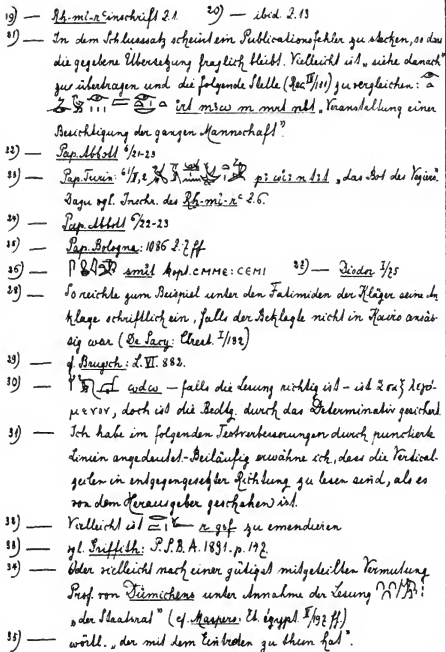 19) — Rh-mi-rꜥ inschrift 2.1. 20) — ibid. 2.13
21) — In dem Schlusssatz scheint ein Publicationsfehler zu stecken, so dass
die gegebene Übersetzung fraglich bleibt. Vielleicht ist „siehe danach"
zu übertragen und die folgende Stelle (Rec. II/131) zu vergleichen:
irt mꜣꜥw m mrt nbt „Veranstaltung einer
Besichtigung der ganzen Mannschaft".
22) — Pap. Abbott 6/21-23
23) — Pap. Turin: 61/II,2 „das Bot des Vezirs"
Dazu vgl. Inschr. des Rh-mi-rꜥ 2.6.
24) — Pap. Abbott 6/22-23
25) — Pap. Bologna: 1086 2.7 ff
26) — smit kopt. CMME: CEMI 27) — Diodor I/75
28) — So reichte zum Beispiel unter den Fatimiden der Kläger seine An
klage schriftlich ein, falls der Beklagte nicht in Kairo ansäs-
sig war (De Sacy: Chrest. I/132)
29) — cf. Brugsch: L. VI. 882.
30) — wdw — falls die Lesung richtig ist – ist ἅπαξ λεγό-
μενον, doch ist die Bedtg. durch das Determinativ gesichert
31) — Ich habe im folgenden Textverbesserungen durch punctierte
Linien angedeutet. Beiläufig erwähne ich, dass die Vertical-
zeilen in entgegengesetzter Richtung zu lesen sind, als es
von dem Herausgeber geschehen ist.
32) — Vielleicht ist r gsf zu emendieren
33) — vgl. Griffith: P.S.B.A. 1891. p. 147.
34) — Oder vielleicht nach einer gütigst mitgeteilten Vermutung
Prof. von Dümichens unter Annahme der Lesung
„der Staatsrat" (cf. Maspero: Et. égypt. II/197 ff.)
35) — wörtl. „der mit dem Eintreten zu thun hat".